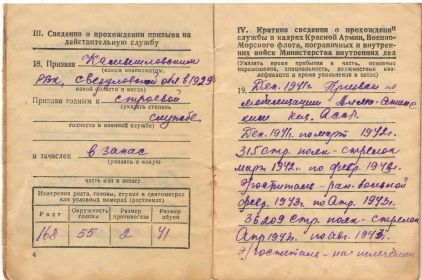 III. Сведения о прохождении призыва на
действительную службу
18. Призван Камышловским
(каким военкоматом,
РВК, Свердловской обл в 1929
какой области и когда)
Признан годным к строевой
(указать степень
службе
годности к военной службе)
и зачислен в запас
(указать в какую
часть или в запас)
Измерения роста, головы, ступни в сантиметрах
или условных номерах (ростовках)
Рост
Окружность головы
Размер противогаза
Размер обуви
168 55 2 41
4
IV. Краткие сведения о прохождении
службы в кадрах Красной Армии, Военно-
Морского флота, пограничных и внутрен-
них войск Министерства внутренних дел
(Указать время прибытия в часть, основные
перемещения, специальность, должностная ква-
лификация и время увольнения в запас)
19. Дек. 1941г. Призван по
мобилизации
Дек. 1941г. по март 1942г.
315 стр. полк - стрелок
март 1942г. по февр. 1943г.
Госпиталь - больной
фев. 1943г. по Апр. 1943г.
стр. полк - стрелок
Апр 1943г. по авг. 1943г.
Госпиталь - на излечении